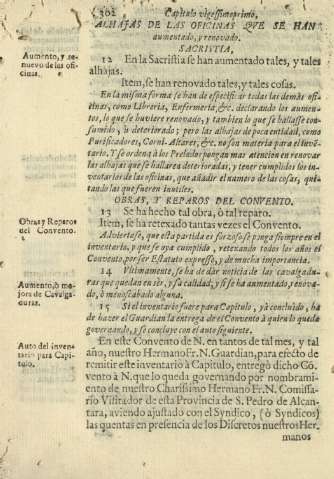 302 Capitulo vigessimoprimo,
ALHAJAS DE LAS OFICINAS QVE SE HAN
aumentado, y renovado.
SACRISTIA,
Aumento, y renuevo de las oficinas.
12 En la Sacristia se han aumentado tales, y tales
alhajas.
Item, se han renovado tales, y tales cosas.
En la misma forma se han de especificar todas las demàs oficinas,
como Libreria, Enfermeria, &c. declarando los aumentos,
lo que se huviere renovado, y tambien lo que se hallasse consumido,
ù deteriorado; pero las alhajas de poca entidad, como
Purificadores, Corni-Altares, &c. no son materia para el inventario.
Y se ordena à los Prelados pongan mas atencion en renovar
las alhajas que se hallaren deterioradas, y tener cumplidos los inventarios
de las oficinas, que añadir el numero de las cosas, quitando
las que fueren inutiles.
OBRAS, Y REPAROS DEL CONVENTO.
Obras, y Reparos
del Convento.
13 Se ha hecho tal obra, ò tal reparo.
Item, se ha retexado tantas vezes el Convento.
Adviertase, que esta partida es forzoso se ponga siempre en el
inventario, y que se aya cumplido, retexando todos los años el
Convento, por ser Estatuto expresso, y de mucha importancia.
Aumento, ò mejora
de Cavalgaduras.
14 Vltimamente, se ha de dàr noticia de las cavalgaduras
que quedan en sèr, y su calidad, y si se ha aumentado, renovado,
ò menoscabado alguna.
15 Si el inventario fuere para Capitulo, yà concluido, ha
de hazer el Guardian la entrega de el Convento à quien lo queda
governando, y se concluye con el auto siguiente.
Auto del inventario
para Capitulo.
En este Convento de N. en tantos de tal mes, y tal
año, nuestro Hermano Fr. N. Guardian, para efecto de
remitir este inventario à Capitulo, entregò dicho Convento
à N. que lo queda governando por nombramiento
de nuestro Charissimo Hermano Fr. N. Comissario
Visitador de esta Provincia de S. Pedro de Alcantara,
aviendo ajustado con el Syndico, (ò Syndicos)
las quentas en presencia de los Discretos nuestros Hermanos